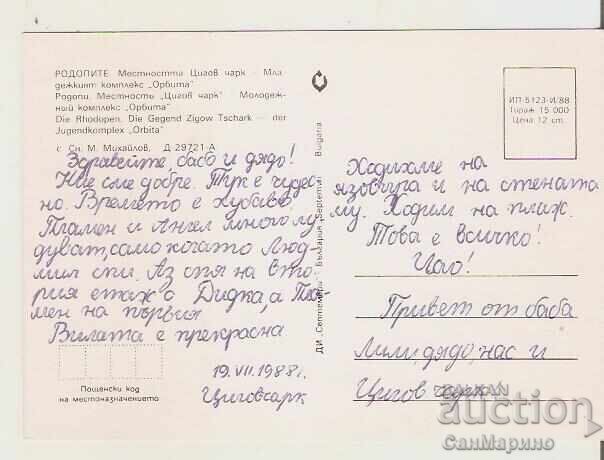 РОДОПИТЕ Местността Цигов чарк – Мла-
дежкият комплекс „Орбита"
Родопы. Местность „Цигов чарк" Молодеж-
ный комплекс „Орбита"
Die Rhodopen. Die Gegend Zigow Tschark — der
Jugendkomplex „Orbita"
с Сн. М. Михайлов, Д 29721-А
Здравейте, бабо и дядо!
Ние сме добре. Тук е чудес
но. Времето е хубаво.
Пламен и Ангел много лу
дуват, само когато Люд
мил спи. Аз спя на вто
рия етаж с Дидка, а Пла-
мен на първия
Вилата е прекрасна
19.VII.1988г.
Цигов чарк
Пощенски код
на местоназначението
ДИ „Септември" България „Septemvri" Bulgaria
ИП-5123-И/88
Тираж 15 000
Цена 12 ст.
Ходихме на
язовира и на стената
му. Ходим на плаж.
Това е всичко!
Чао!
Привет от баба
Лили, дядо, нас и
Цигов чарк
BALKAN
auction
СанМарино